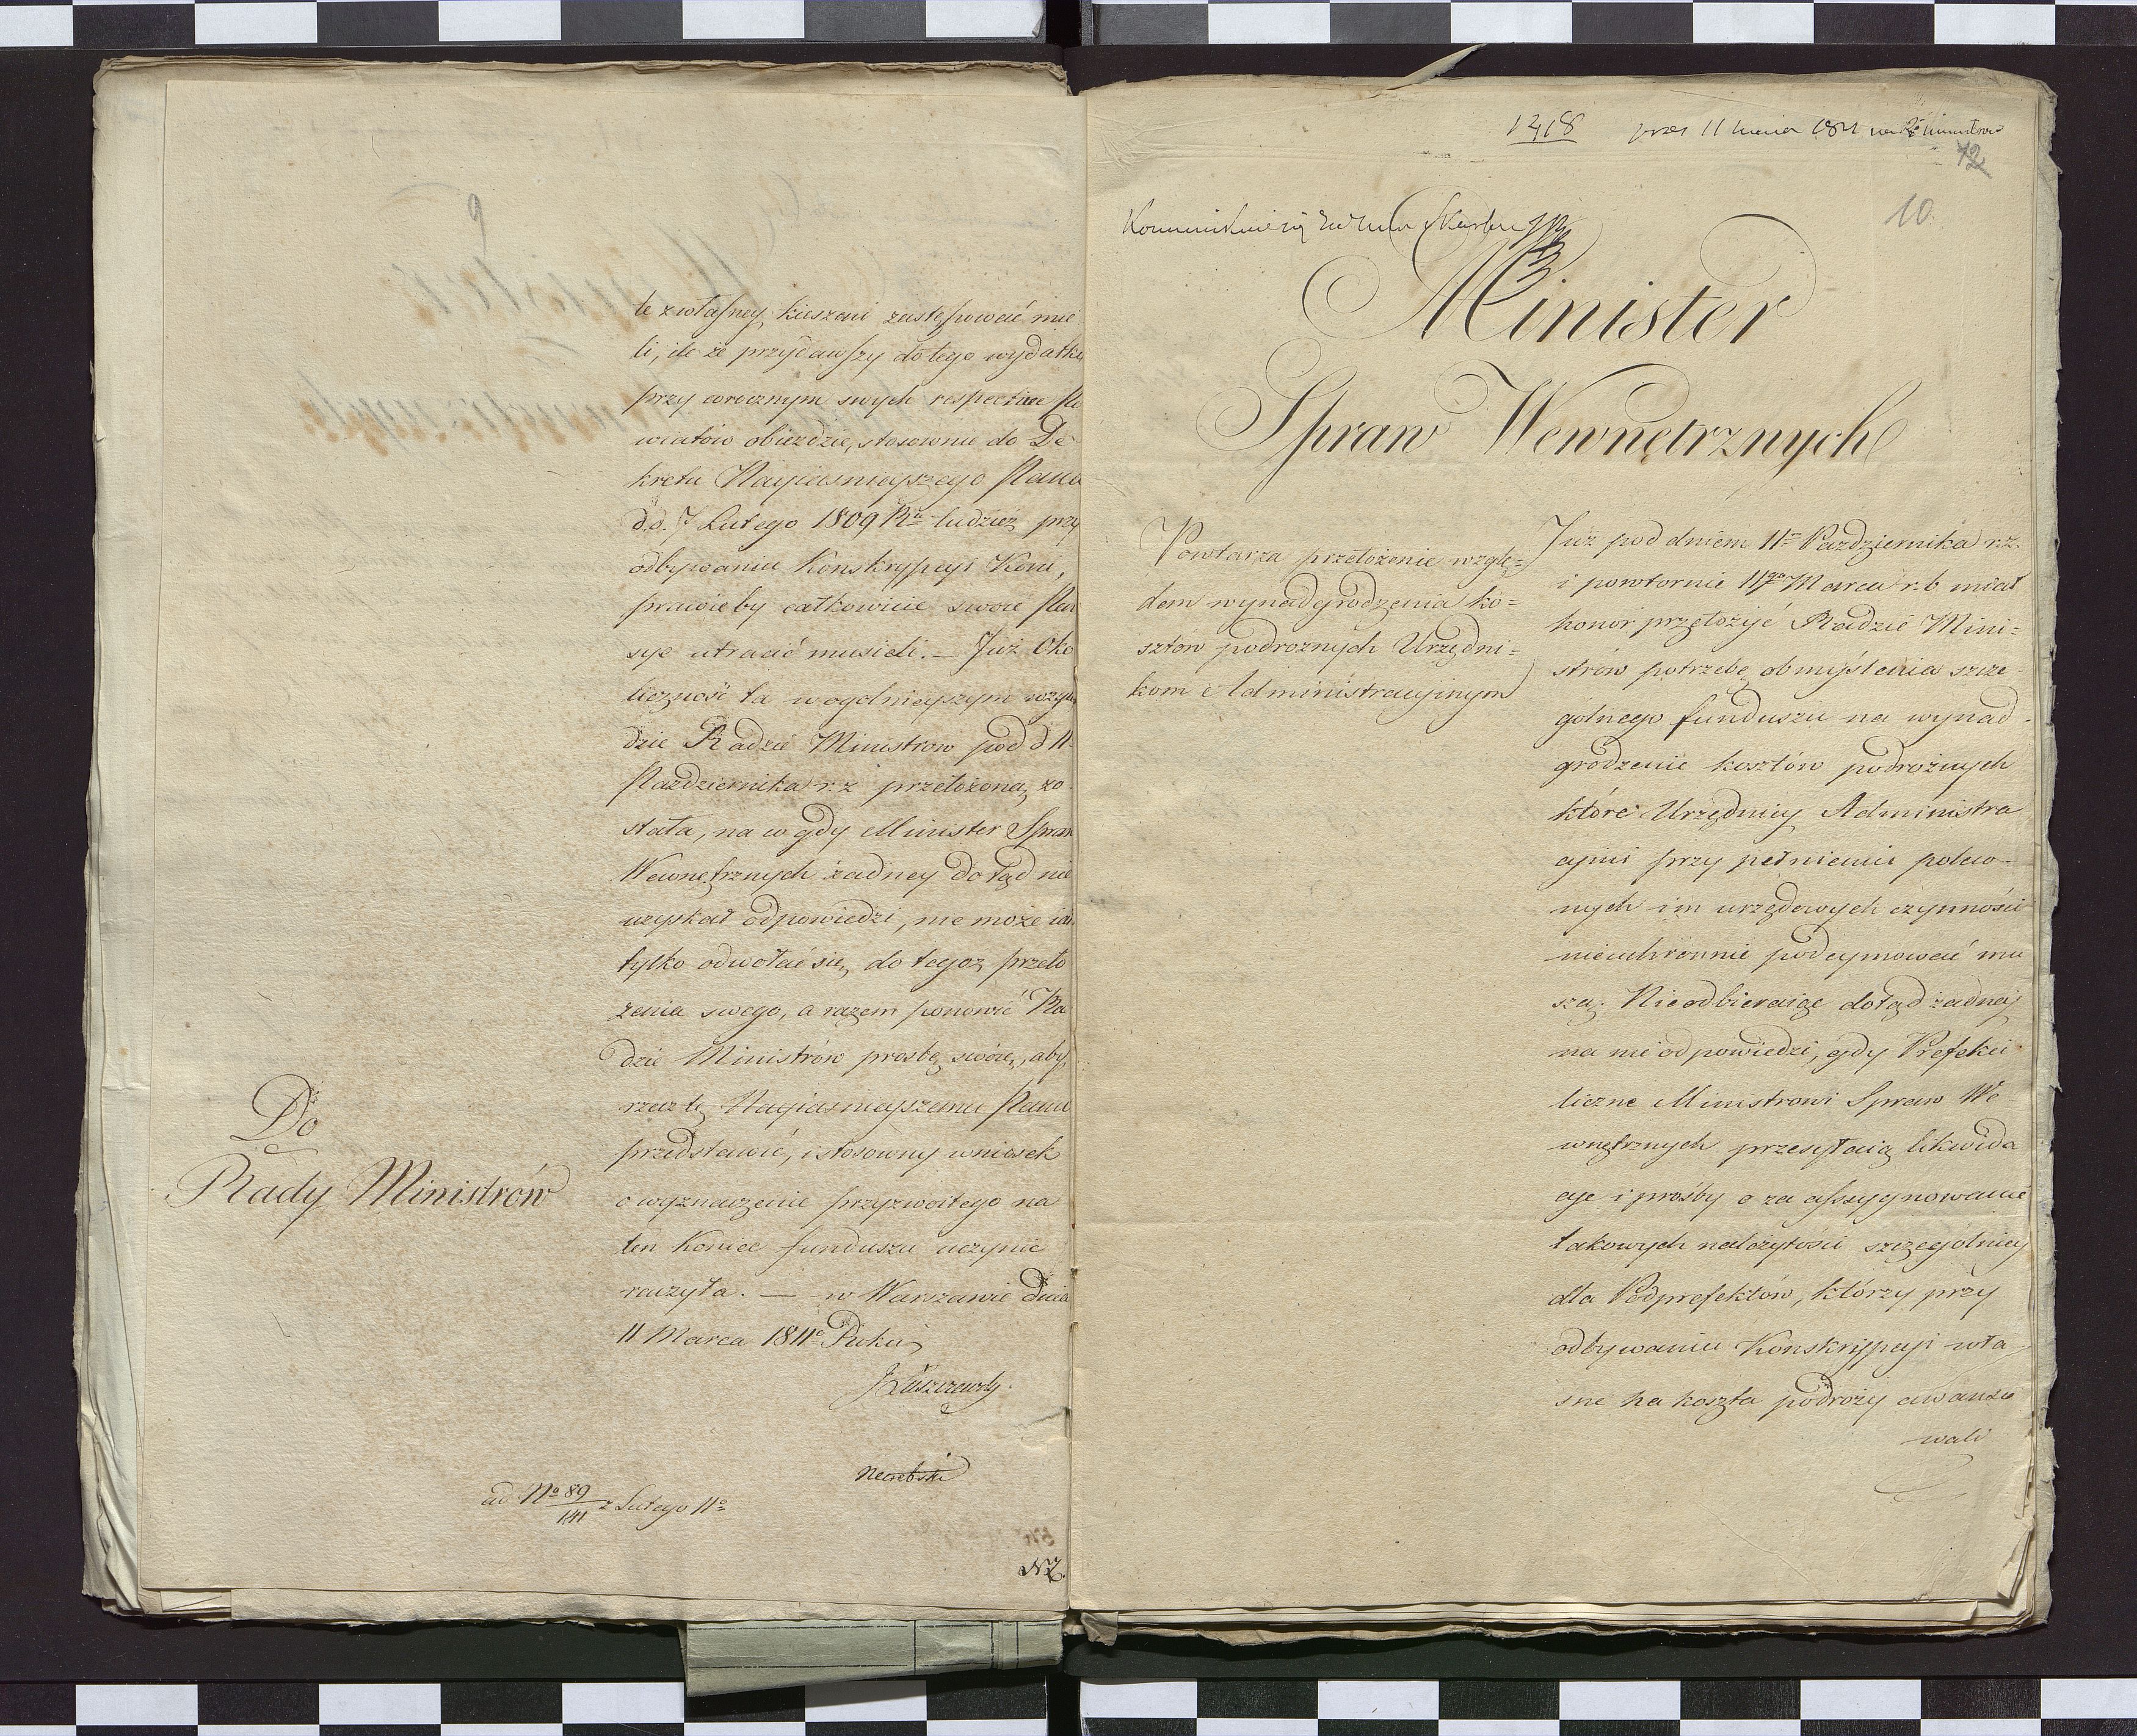 te z własney kieszeni zastępować mie
li, ile że przydawszy do tego wydatki
przy corocznym swych respective Po
wiatów obieździe, stosownie do De-
kretu Nayiaśnieyszego Pana
d.d. 7 Lutego 1809 Ru tudzież przy
odbywaniu Konskrypcyi Koni,
prawie by całkowicie swoie Pen
sye utracić musieli. — Już Oko
liczność ta w ogolnieyszym wzglę
dzie Radzie Ministrow pod d 11
Października r. z. przełożoną zo
stała, na co gdy Minister Spraw
Wewnętrznych żadney dotąd nie
uzyskał odpowiedzi, nie może iak
tylko odwołać się, do tegoż przeło
żenia swego, a razem ponowić Ra
dzie Ministrów prośbę swoię, aby
rzecz tę Nayiaśnieyszemu Panu
przedstawić, i stosowny wniosek
o wyznaczenie przyzwoitego na
ten koniec funduszu uczynić
raczyła. — w Warszawie Dnia
11 Marca 1811o Roku
JŁuszczewski.
Do
Rady Ministrów
ad No 89/141 z Lutego 11o
NZ.
1418
12
10.
Minister
Spraw Wewnętrznych
Powtarza przełożenie wzglę=
dem wynadgrodzenia ko=
sztów podrożnych Urzędni=
kom Administracyinym
Już pod dniem 11o Października r. z.
i powtornie 11go Marca r. b. miał
honor przełożyć Radzie Mini=
strów potrzebę obmyślenia szcze-
gólnego funduszu na wynad-
grodzenie kosztów podrożnych
które Urzędnicy Administra
cyini przy pełnieniu poleco-
nych im urzędowych czynności
nieuchronnie podeymować mu
szą. Nie odbieraiąc dotąd żadney
na nie odpowiedzi, gdy Prefekci
liczne Ministrowi Spraw We-
wnętrznych przesyłaią likwida
cye i prośby o za assygnowanie
takowych należytości szczególniey
dla Podprefektów, którzy przy
odbywaniu Konskrypcyi wła
sne na koszta podroży awanso
wali